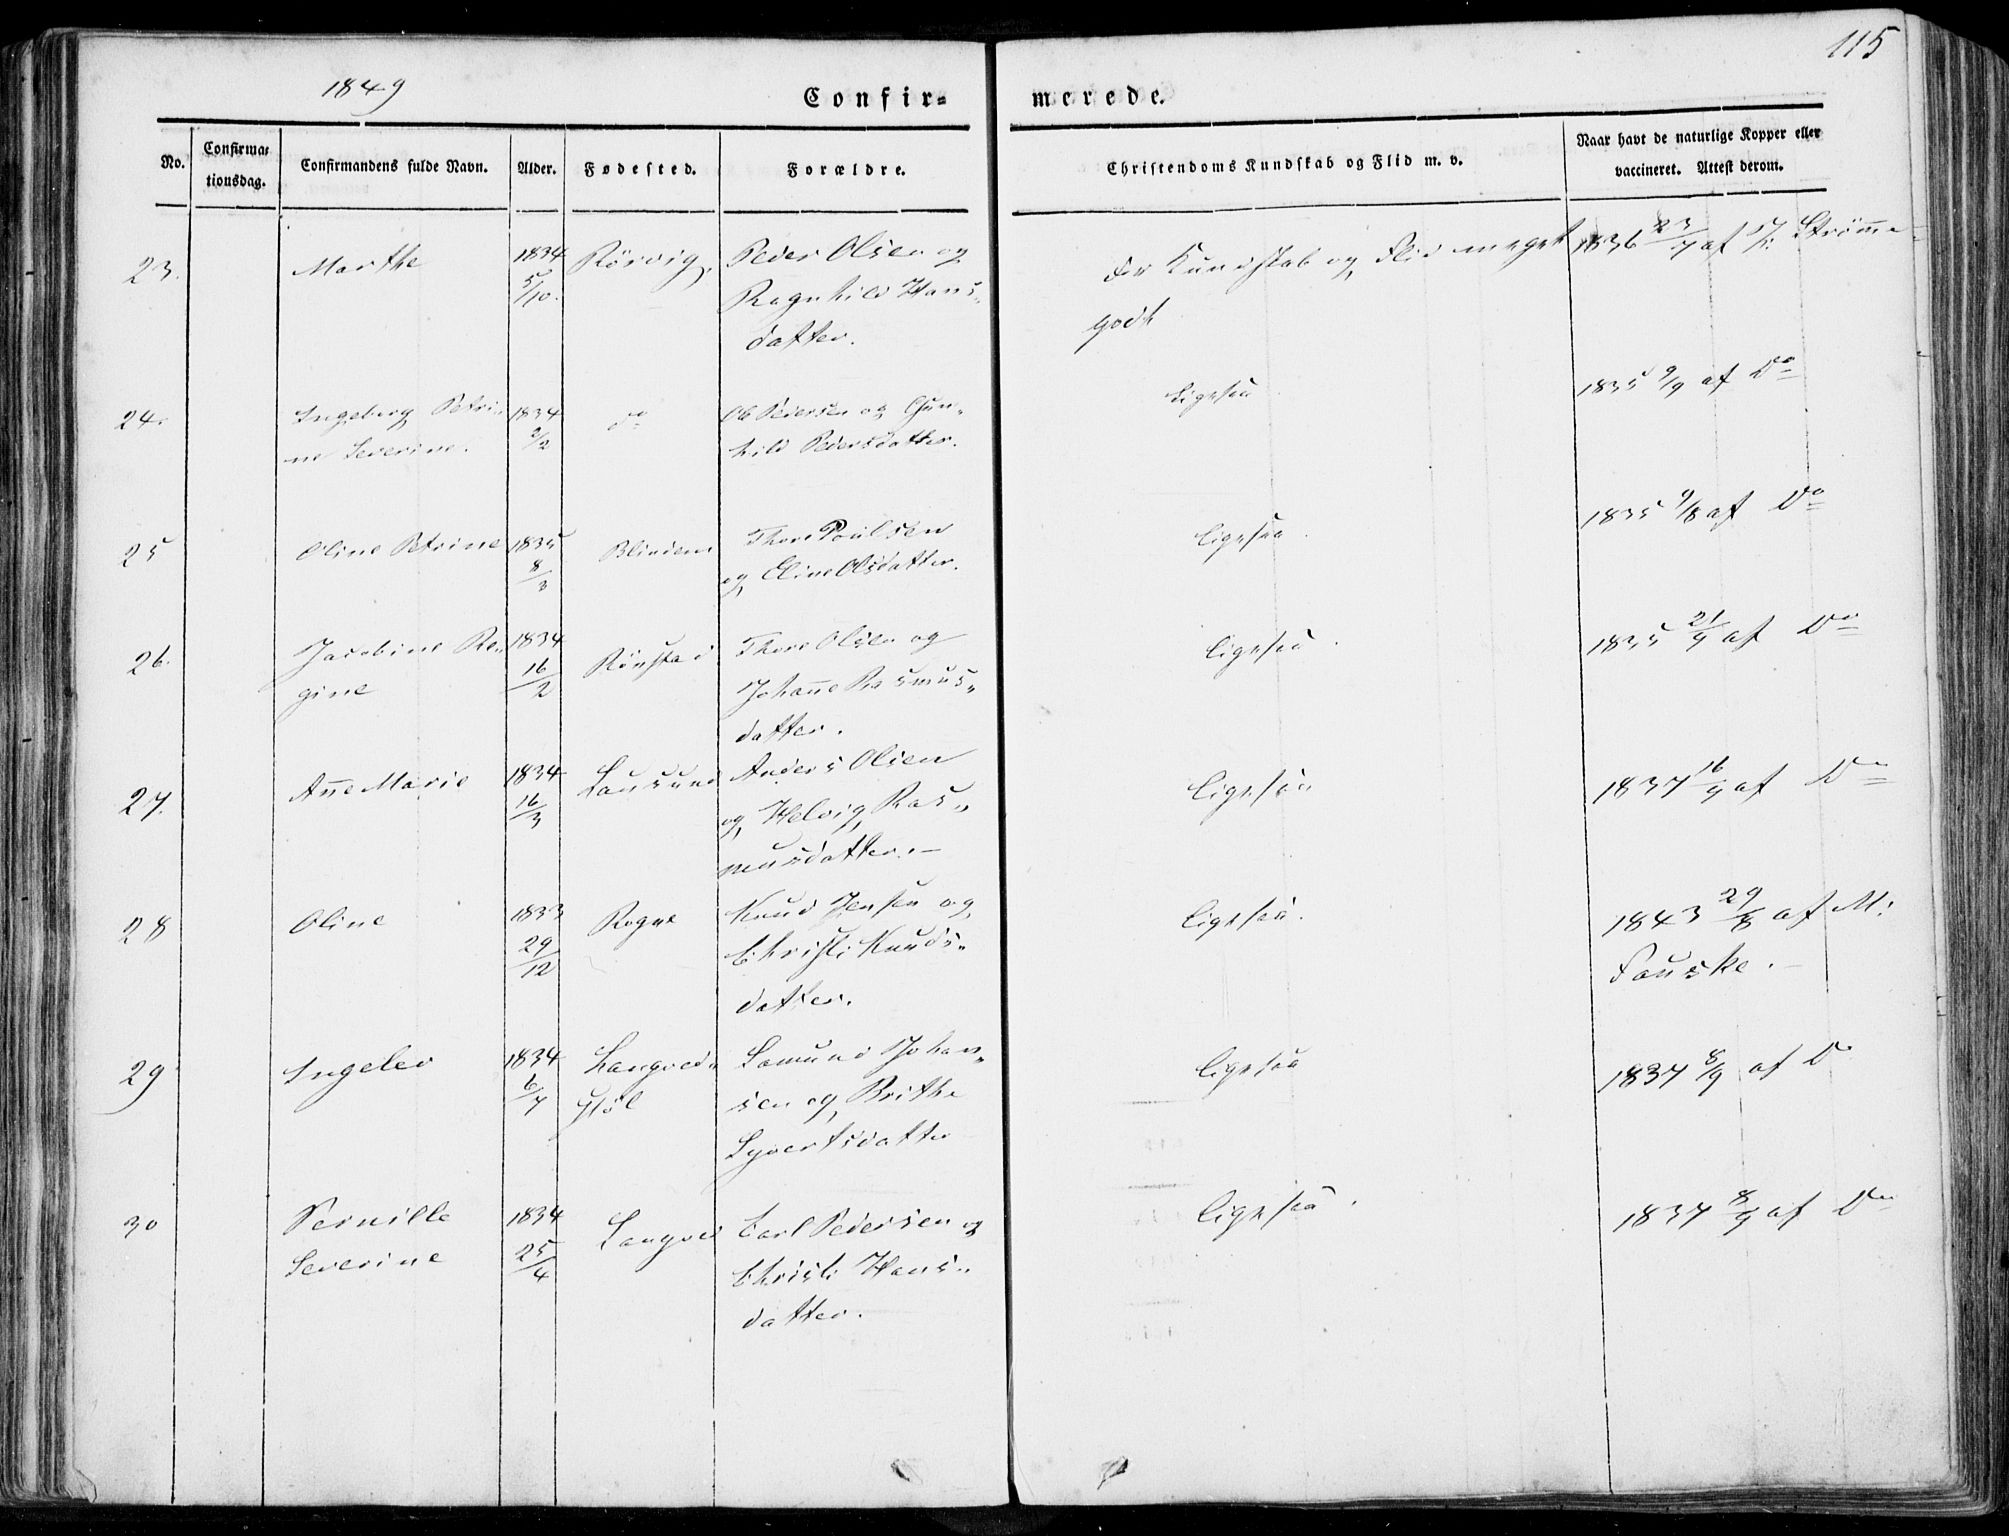 1849
115
Confir=
merede.
No.
Confirma=
tionsdag.
Confirmandens fulde Navn.
Alder.
Fødested.
Forældre.
Christendoms Kundskab og Flid m. v.
Naar havt de naturlige Kopper eller
vaccineret. Attest derom.
23. Marthe 1834 Rörvig. Peder Olsen og
5/10. Ragnhild Hans-
datter.
Kundskab og Flid meget
godt
1836 23/7 af Strömme
24. Ingeborg Petri- 1834 do Ole Pedersen og Gun-
ne Severine. 2/2 hild Pedersdatter.
Ligesaa
1835 9/9 af Do
25 Oline Petrine 1835 Blindem Thore Poulsen
8/3 og Eline Olsdatter.
Ligesaa.
1835 9/8 af Do
26. Jacobine Re- 1834 Rönstad Thore Olsen og
gine 16/2 Johanne Rasmus-
datter.
Ligesaa.
1835 21/9 af Do
27. Anne Marie 1834 Lausund Anders Olsen
16/3 og Helvig Ras-
musdatter.
Ligesaa
1837 16/9 af Do
28 Oline 1833 Rogne Knud Jensen og
29/12 Christi Knuds-
datter.
Ligesaa.
1843 29/8 af M:
Fauske.
29 Ingelev 1834 Langved- Samund Johan-
6/7 sen og Brithe
Syvertsdatter
Ligesaa
1837 8/9 af Do
30 Pernille 1834 Langved Carl Pedersen og
Severine 25/4 Christi Hans-
datter.
Ligesaa.
1837 8/9 af Do